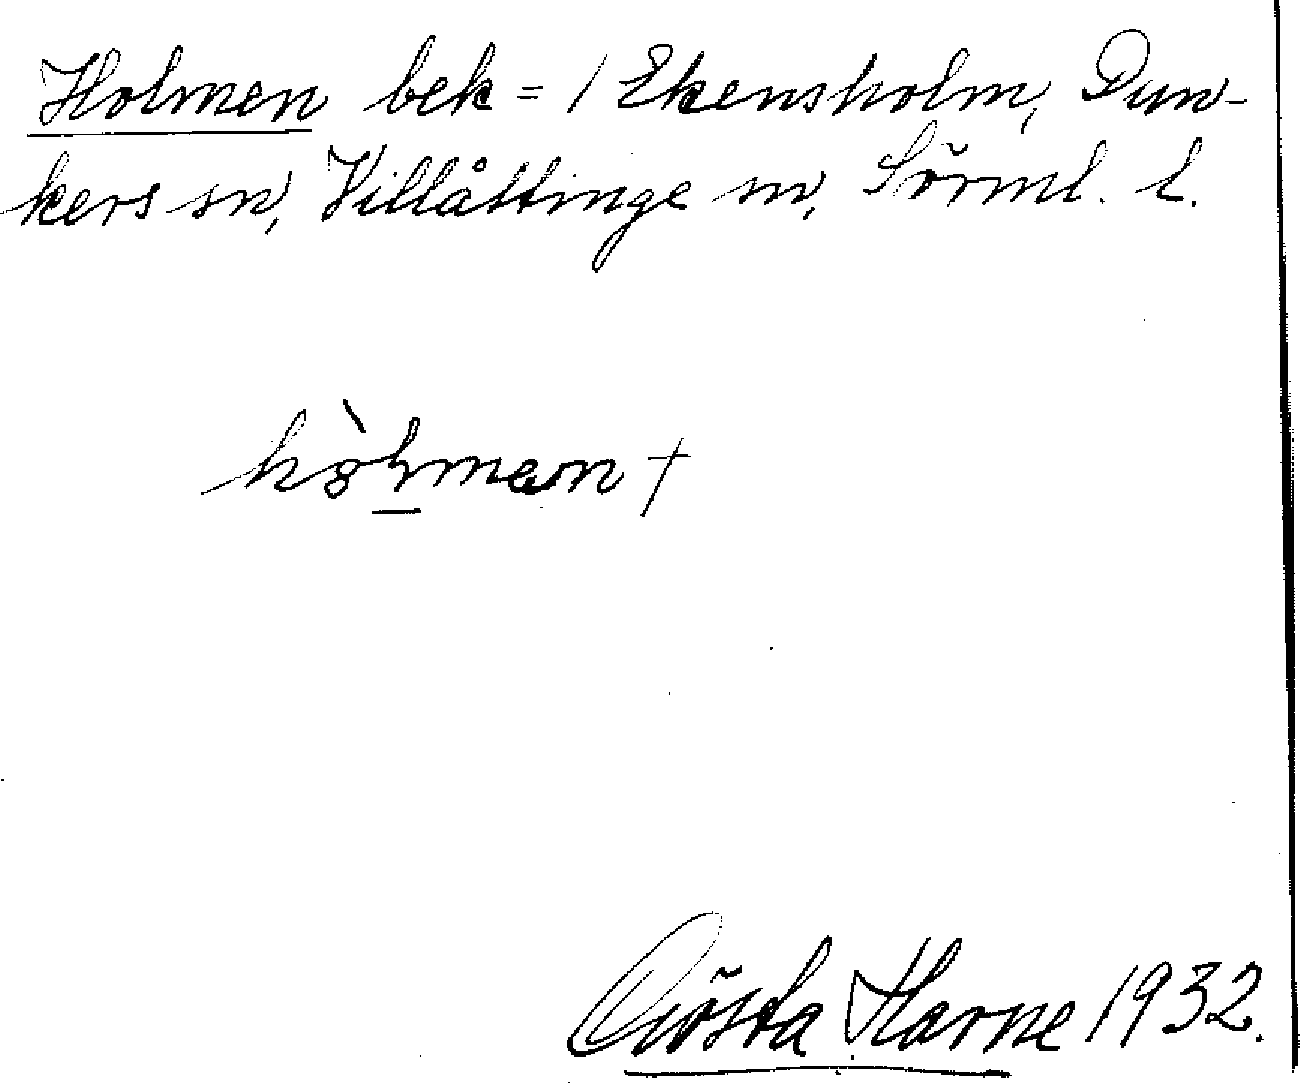 Holmen bek = / Ekensholm, Dun-
kers sn, Villåttinge m, Sörml. l.
Gösta Harne 1932.